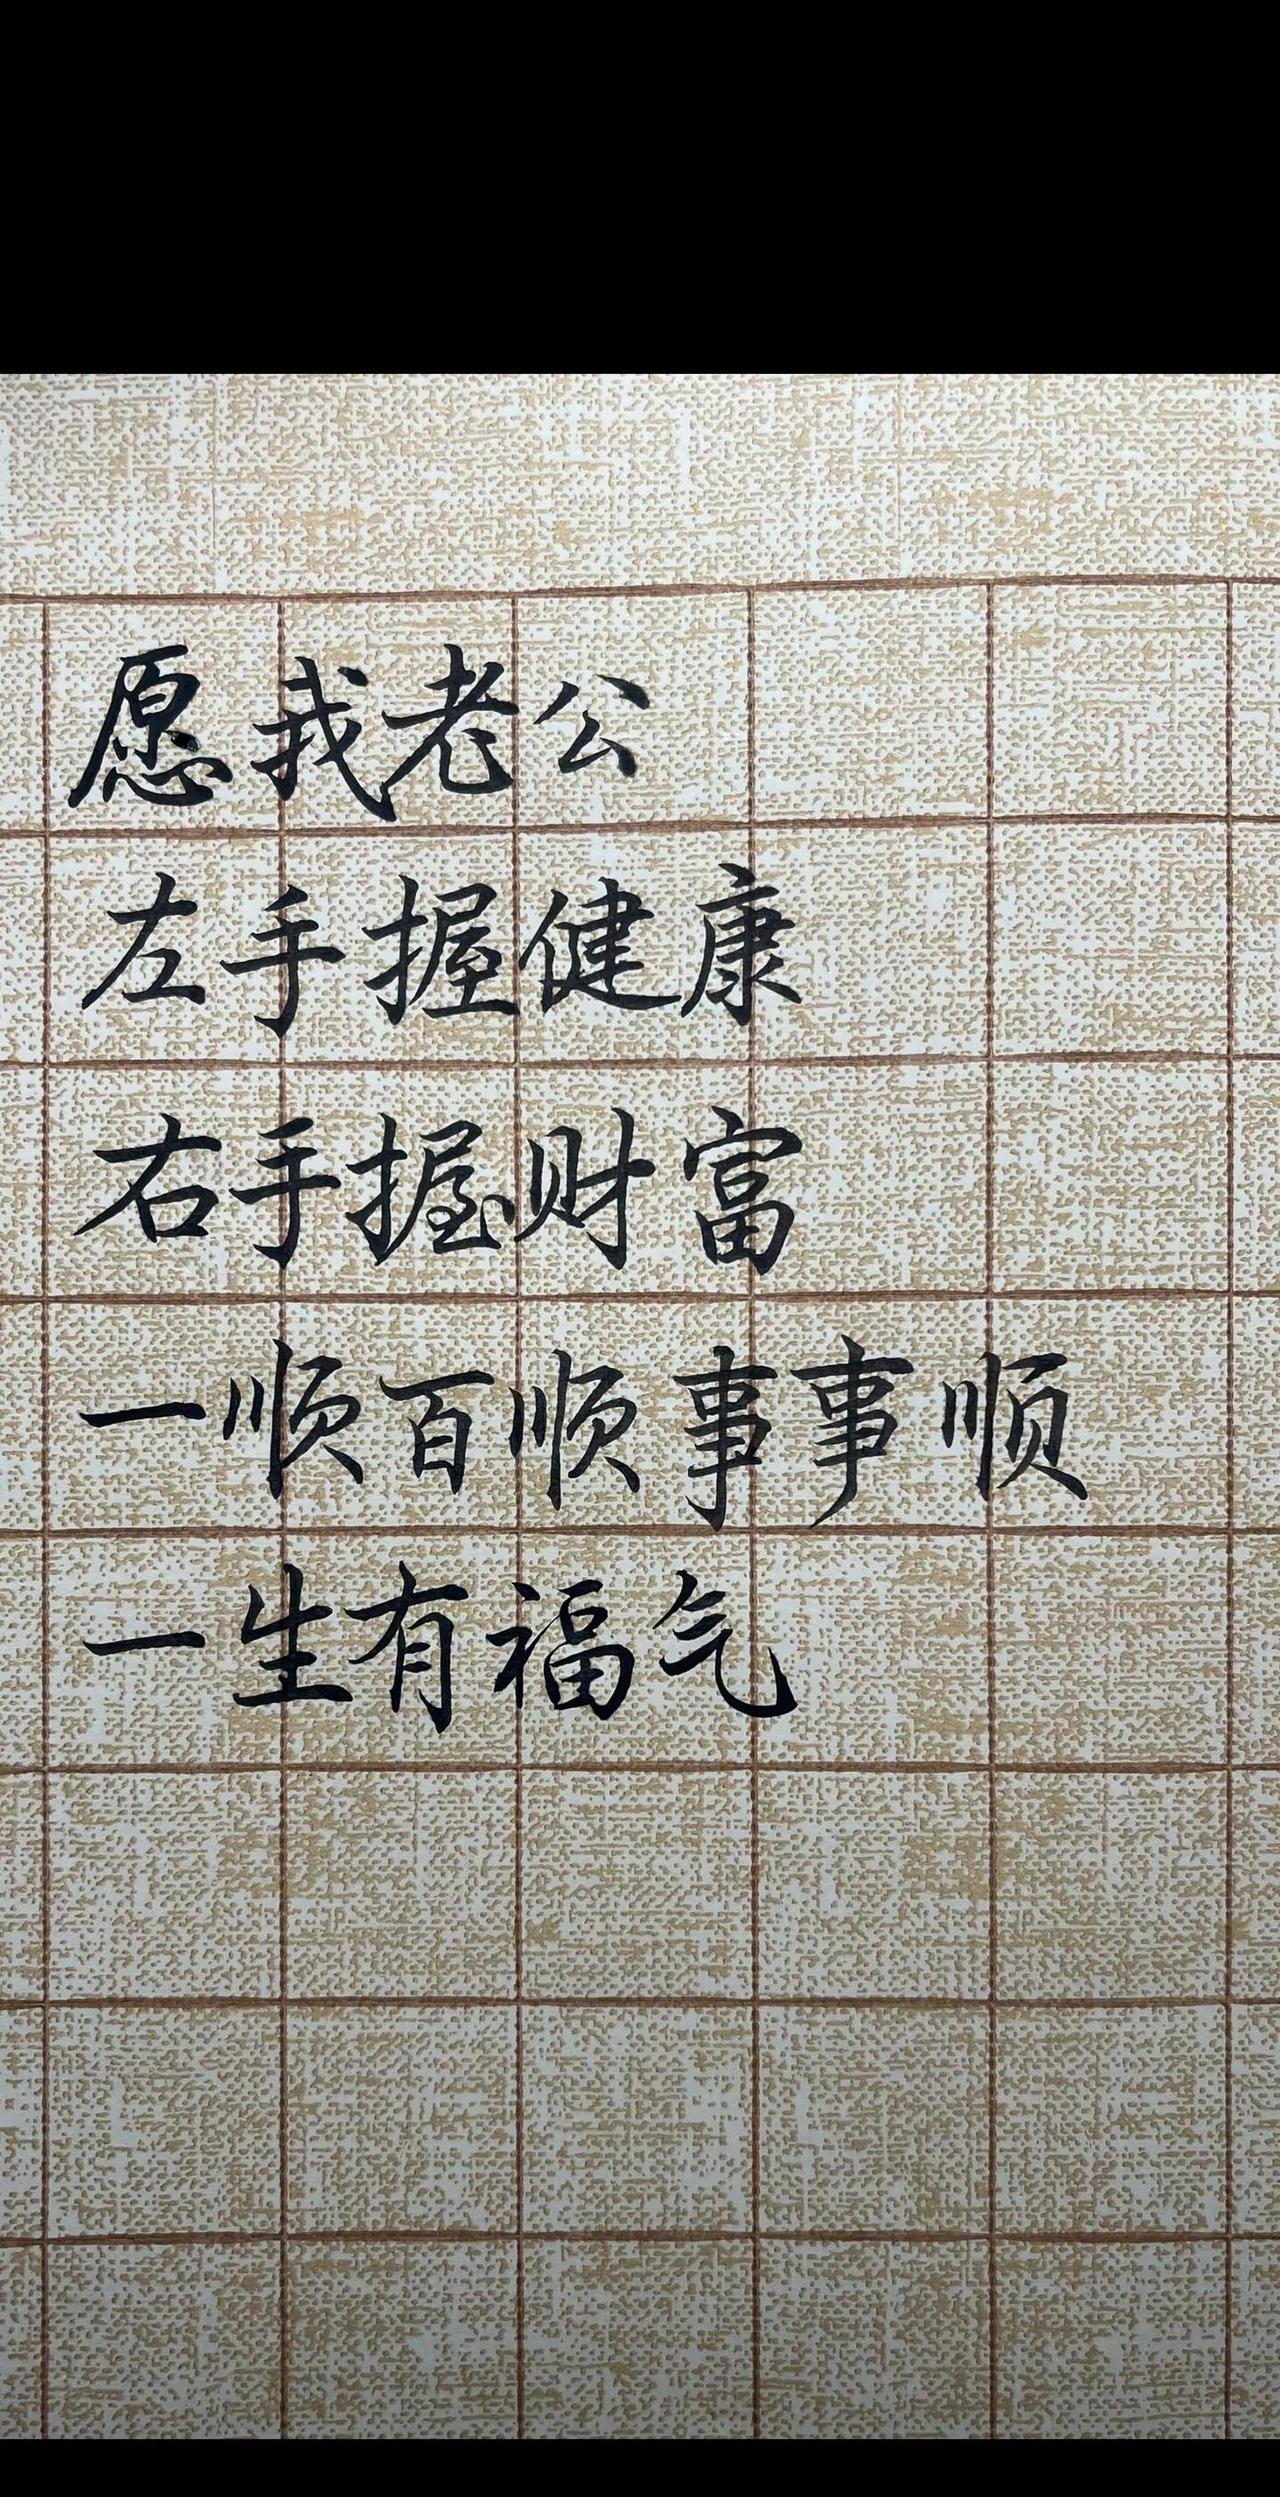 愿我老公
左手握健康
右手握财富
一顺百顺事事顺
一生有福气